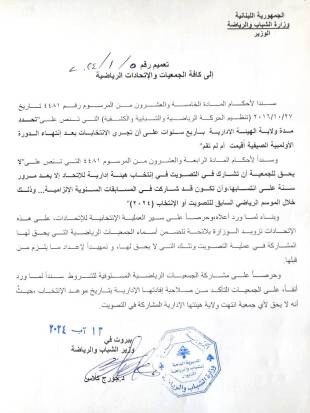 الجمهورية اللبنانية
وزارة الشباب والرياضة
الوزير
تعميم رقم ٢٠٢٤/١/٥
إلى كافة الجمعيات والإتحادات الرياضية
سنداً لأحكام المادة الخامسة والعشرون من المرسوم رقم ٤٤٨١ تاريخ
٢٠١٦/١٠/٢٧ (تنظيم الحركة الرياضية والشبابية والكشفية) التي تنص على "تحدد
مدة ولاية الهيئة الادارية بأربع سنوات على أن تجري الانتخابات بعد إنتهاء الدورة
الأولمبية الصيفية أقيمت أم لم تقم"
وسنداً لأحكام المادة الرابعة والعشرون من المرسوم ٤٤٨١ التي تنص على "لا
يحق للجمعية أن تشارك في التصويت في إنتخاب هيئة ادارية للإتحاد إلا بعد مرور
سنة على انتسابها، وأن تكون قد شاركت في المسابقات السنوية الالزامية... وذلك
خلال الموسم الرياضي السابق للتصويت أو الإنتخاب (٢٠٢٤)"
وبناء لما ورد أعلاه، وحرصاً على سير العملية الإنتخابية للإتحادات، على هذه
الإتحادات تزويد الوزارة بلائحة تتضمن أسماء الجمعيات الرياضية التي يحق لها
المشاركة في عملية التصويت وتلك التي لا يحق لها، و تمهيداً لإعداد ما يلزم من
قبلها.
وحرصاً على مشاركة الجمعيات الرياضية المستوفية للشروط سنداً لما ورد
آنفاً، على الجمعيات التأكد من صلاحية إفاداتها الإدارية بتاريخ موعد الإنتخاب بحيث
أنه لا يحق لأي جمعية انتهت ولاية هيئتها الإدارية المشاركة في التصويت.
بيروت في
وزير الشباب والرياضة
د. جورج كلاس